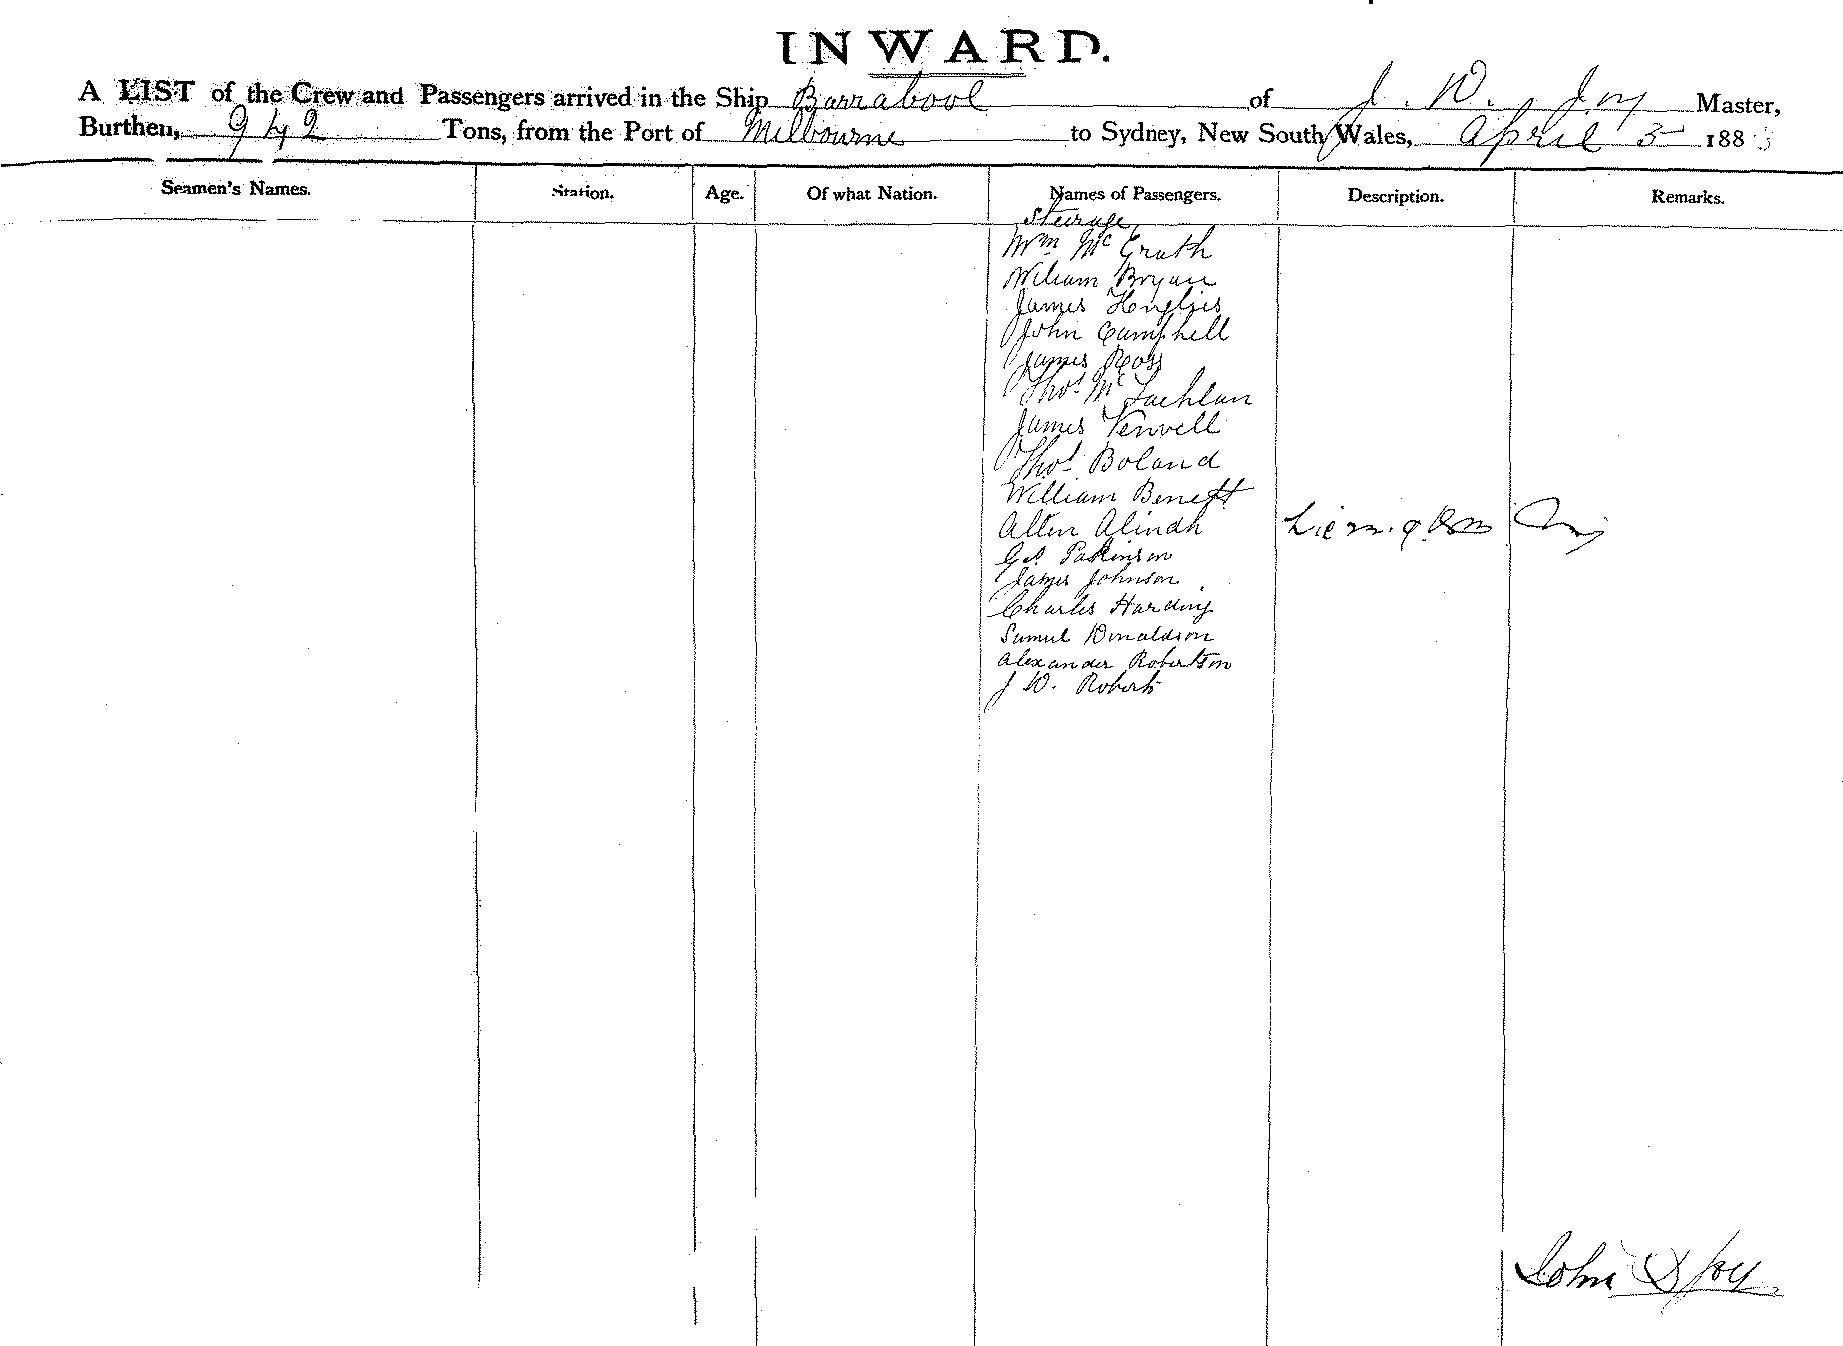 INWARD.
A LIST of the Crew and Passengers arrived in the Ship Barrabool of J. W. Joy Master,
Burthen, 942 Tons, from the Port of Melbourne to Sydney, New South Wales, April 3 1883
Seamen's Names. Station. Age. Of what Nation. Names of Passengers. Description. Remarks.
Steerage
Wm McGrath
William Bryan
James
John Campbell
James Ross
Thos McLachlan
James
Thos Boland
William Benett
Parkinson
James Johnson
Charles Harding
Samuel Donaldson
Alexander Robertson
J W. Roberts
John Joy